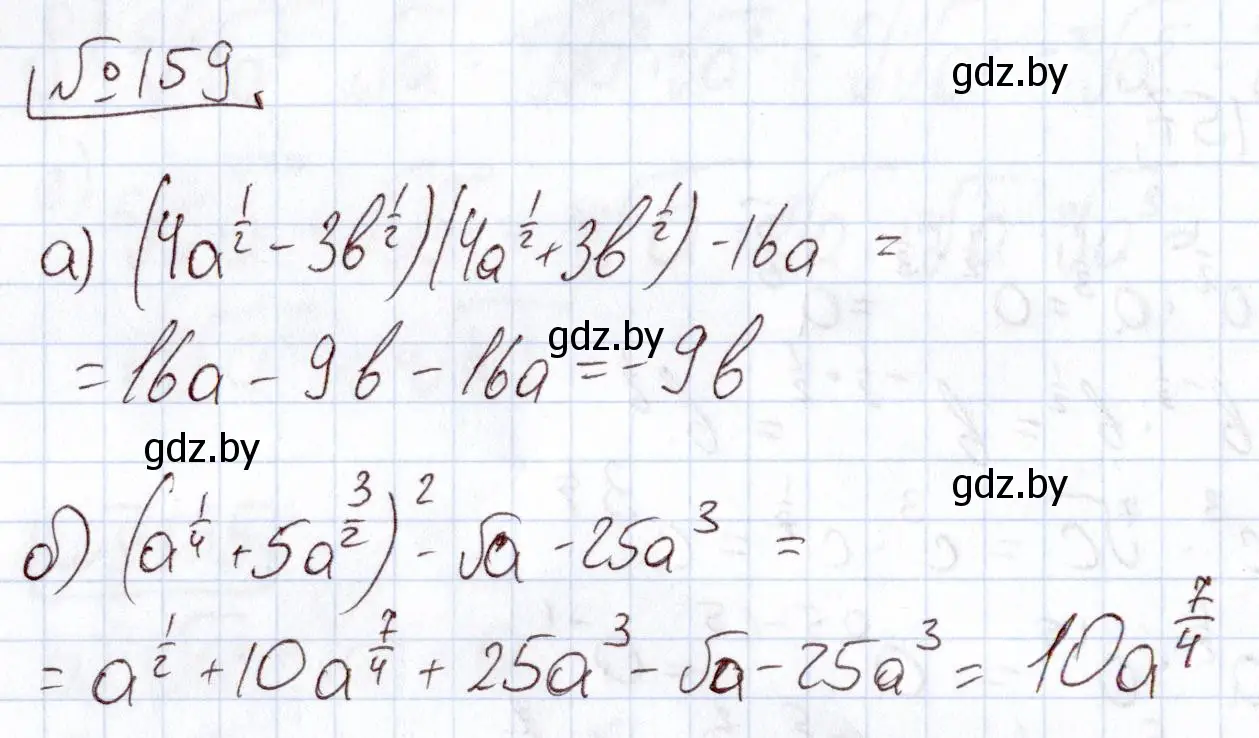 №159
gdz.by
а) (4a^{1/2} - 3b^{1/2})(4a^{1/2} + 3b^{1/2}) - 16a =
= 16a - 9b - 16a = -9b
gdz.by
gdz.by
gdz.by
б) (a^{1/4} + 5a^{3/2})^2 - √a - 25a^3 =
= a^{1/2} + 10a^{7/4} + 25a^3 - √a - 25a^3 = 10a^{7/4}